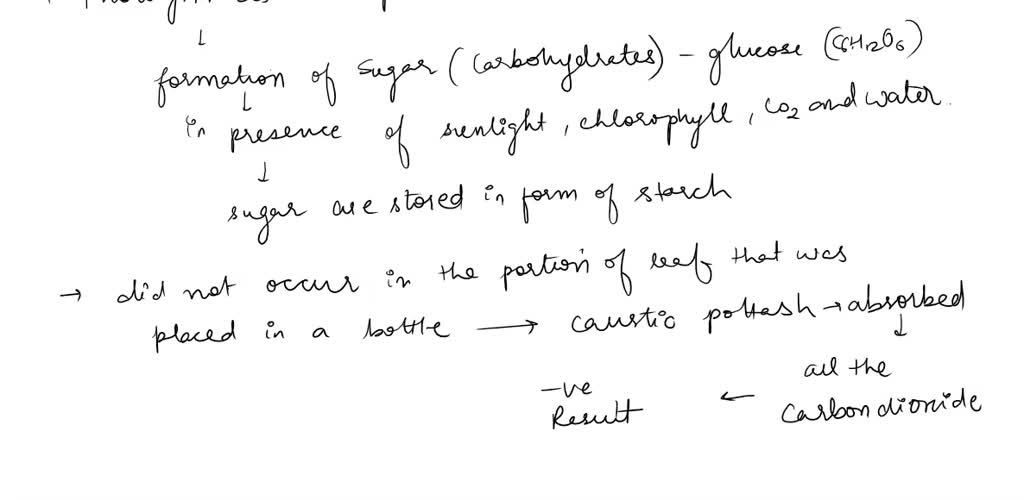 formation of sugar (carbohydrates) - glucose (C6H12O6)
in presence of sunlight, chlorophyll, CO2 and water.
sugar are stored in form of starch
→ did not occur in the portion of leaf that was
placed in a bottle → caustic pottash → absorbed
all the
carbondioxide
← -ve
Result